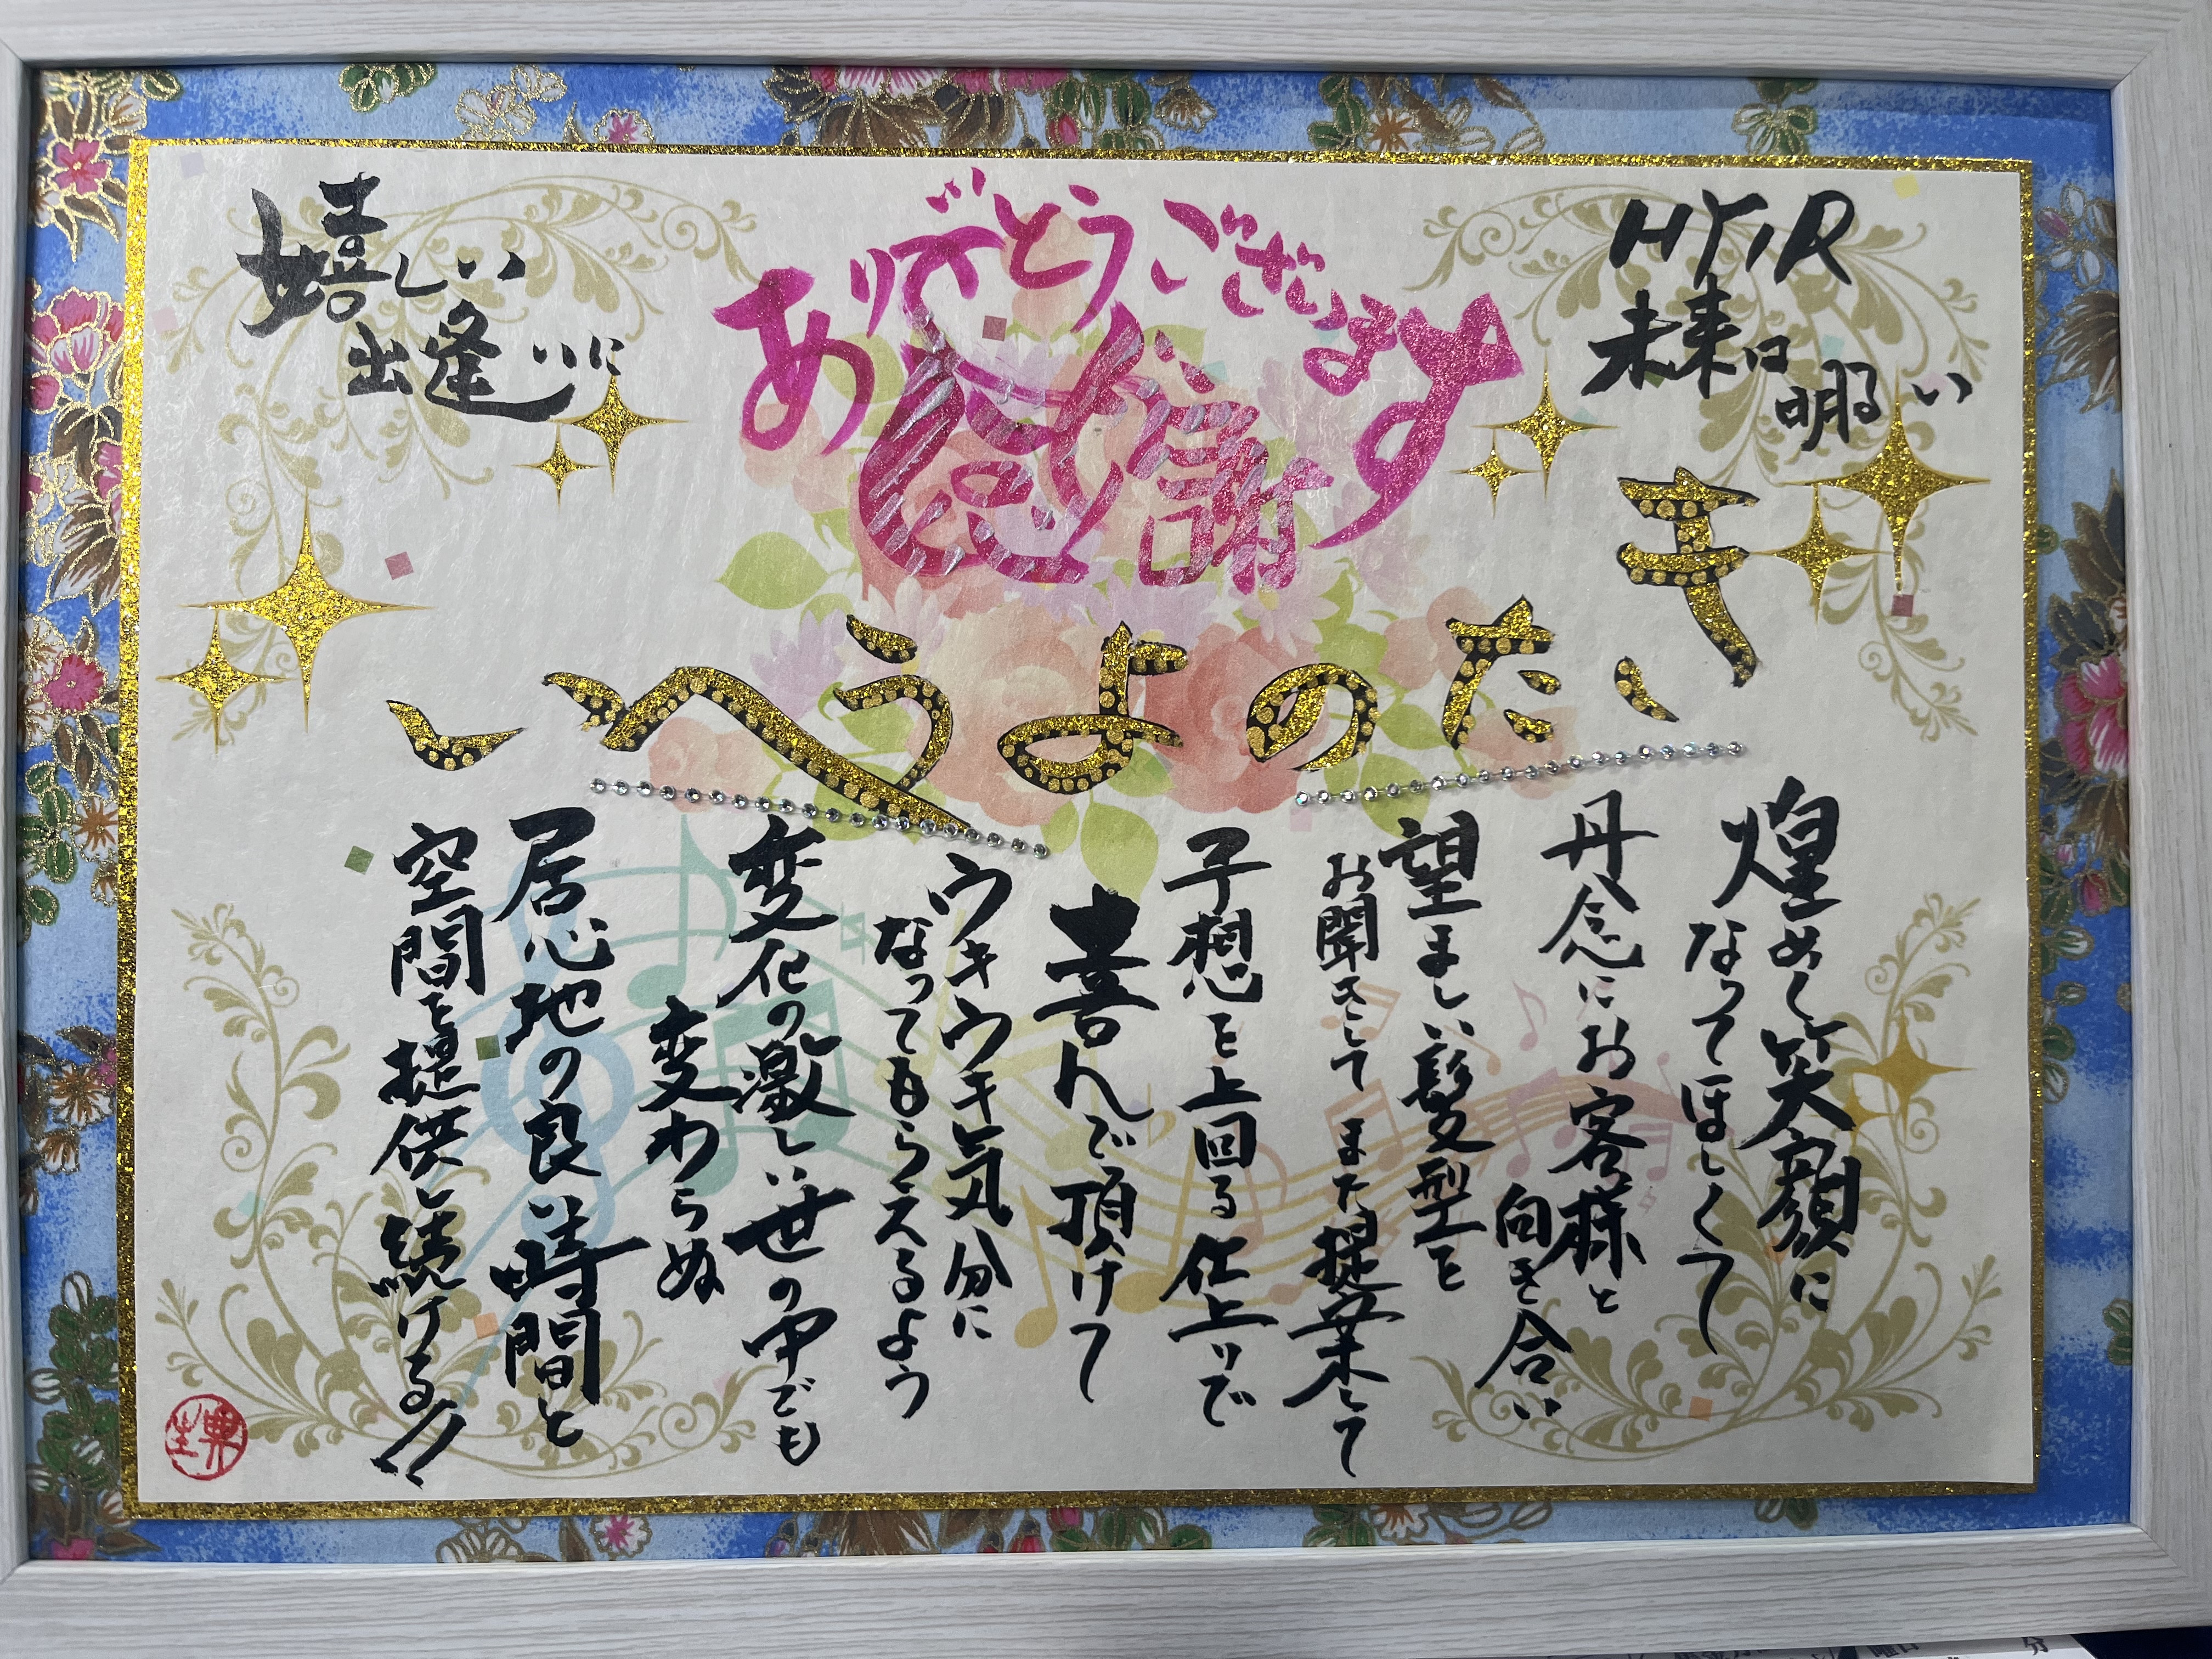 HAIR
未来は
明るい
ありがとうございます
感謝
嬉しい
出逢いに
きたのようへい
煌めく笑顔に
なってほしくて
丹念にお客様と
向き合い
望ましい髪型を
お聞きしてまた提案して
予想を上回る仕上りで
喜んで頂けて
ウキウキ気分に
なってもらえるよう
変化の激しい世の中でも
変わらぬ
居心地の良い時間と
空間を提供し続ける!!